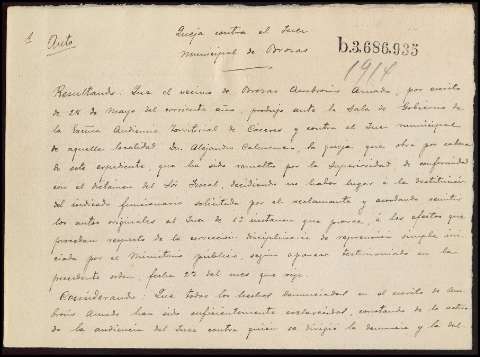 Queja contra el Juez
municipal de Brozas
Auto
b.3.686.935
1914
Resultando: Que el vecino de Brozas Ambrosio Amado, por escrito
de 28 de Mayo del corriente año, produjo ante la Sala de Gobierno
de la Excma Audiencia Territorial de Cáceres y contra el Juez municipal
de aquella localidad Dn. Alejandro la queja que obra por cabeza
de este expediente, que ha sido resuelto por la Superioridad, de conformidad
con el dictamen del Sor Fiscal, decidiendo no haber lugar a la destitucion
del indicado funcionario solicitada por el reclamante y acordando remitir
los autos originales al Juez de 1ª instancia que provee, á los efectos que
procedan respecto de la correccion disciplinaria de reprension simple ini-
ciada por el Ministerio publico, segun aparece testimoniado en la
precedente orden, fecha 27 del mes que rige.
Considerando: Que todos los hechos denunciados en el escrito de Am-
brosio Amado han sido suficientemente esclarecidos, constando de
de la audiencia del Juez contra quien se dirigió la denuncia y la del